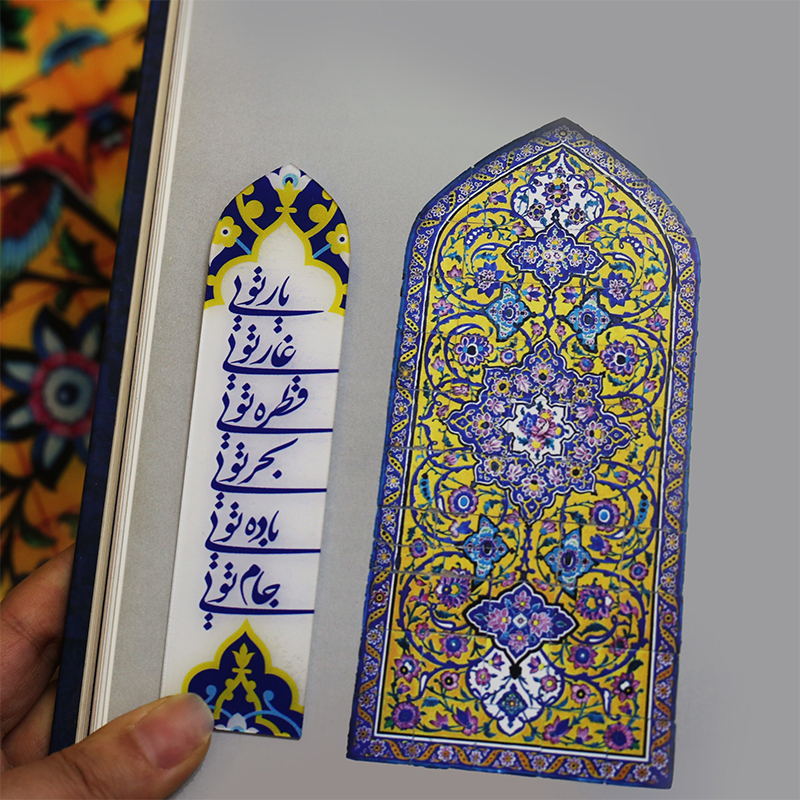 یار تویی
غار تویی
قطره تویی
بحر تویی
باده تویی
جام تویی